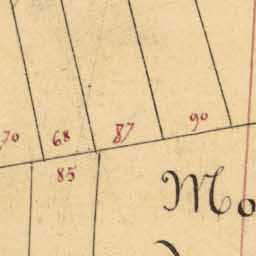 70 68 87 90
85
Mo